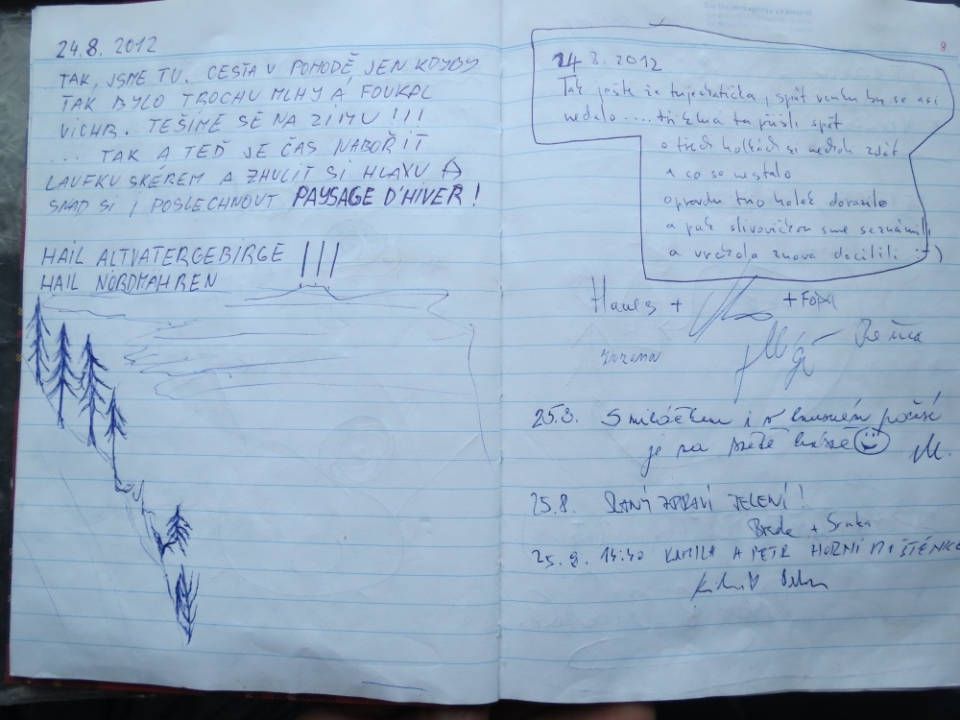 24.8. 2012
TAK, JSME TU. CESTA V POHODĚ JEN KDYBY
TAK BYLO TROCHU MLHY A FOUKAL
VICHR. TĚŠÍME SE NA ZIMU !!!
... TAK A TEĎ JE ČAS NABOŘIT
A ZHULIT SI HLAVU A
SNAD SI I POSLECHNOUT PAYSAGE D'HIVER !
HAIL ALTVATERGEBIRGE
HAIL NORDMAHREN |||
8
24 8. 2012
Tak ještě že tu je chatička, spát venku by se asi
nedalo .... tu přišli spát
o třech holkách si nechali zdát
a co se nestalo
opravdu trio holek dorazilo
a pak slivovičkou sme seznámili
a vrcholo znova docílili :)
Hanes +
+ Fopa
Zuzana
25.8. S miláčkem i v hnusném počasí
je na světě krásně
M.
25.8. SLANÝ ZDRAVÍ JELENÍ !
+
25.8. 14:40 KAMILA A PETR HORNÍ MOŠTĚNICE